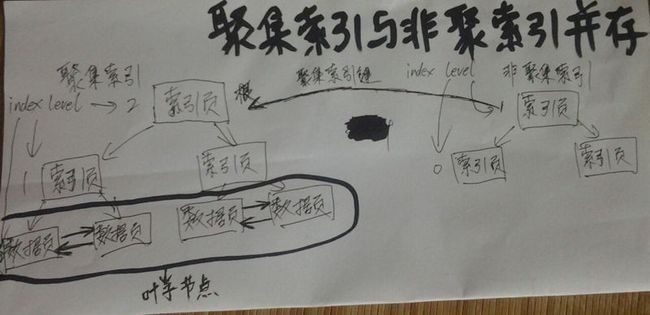 聚集索引与非聚索引并存
聚集索引
聚集索引键
index level
非聚集索引
index level → 2
索引页
根
索引页
索引页
索引页
1
索引页
0
索引页
索引页
数据页
数据页
数据页
数据页
叶子节点